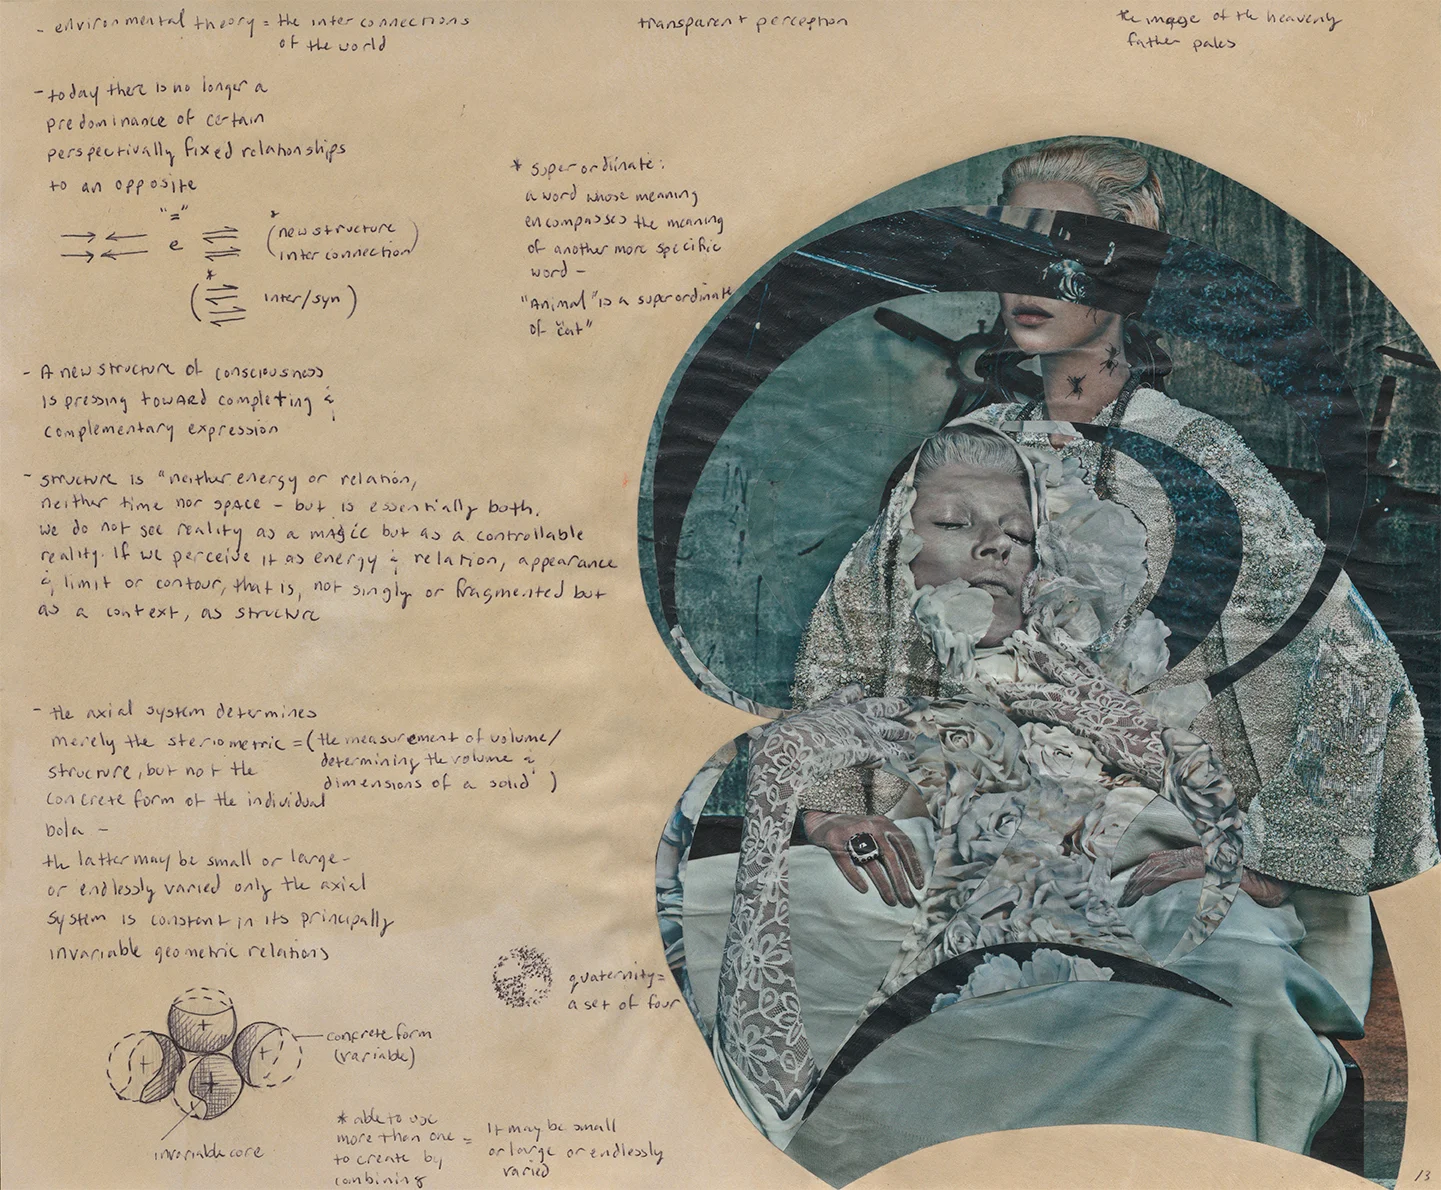 - environmental theory = the inter connections
of the world
transparent perception
the image of the heavenly
father pales
- today there is no longer a
predominance of certain
perspectivally fixed relationships
to an opposite
"="
e
* (new structure
inter connection)
* ( inter/syn )
* superordiinate:
a word whose meaning
encompasses the meaning
of another more specific
word -
"Animal" is a superordinate
of "cat"
- A new structure of consciousness
is pressing toward completing &
complementary expression
- structure is "neither energy or relation,
neither time nor space - but is essentially both.
we do not see reality as a magic but as a controllable
reality. If we perceive it as energy & relation, appearance
& limit or contour, that is, not singly or fragmented but
as a context, as structure
- the axial system determines
merely the steriometric = (the measurement of volume/
structure, but not the determining the volume &
concrete form of the individual dimensions of a solid)
bola -
the latter may be small or large -
or endlessly varied only the axial
system is constant in its principally
invariable geometric relations
quaternity =
a set of four
concrete form
(variable)
invariable core
* able to use
more than one =
to create by
combining
It may be small
or large or endlessly
varied
13